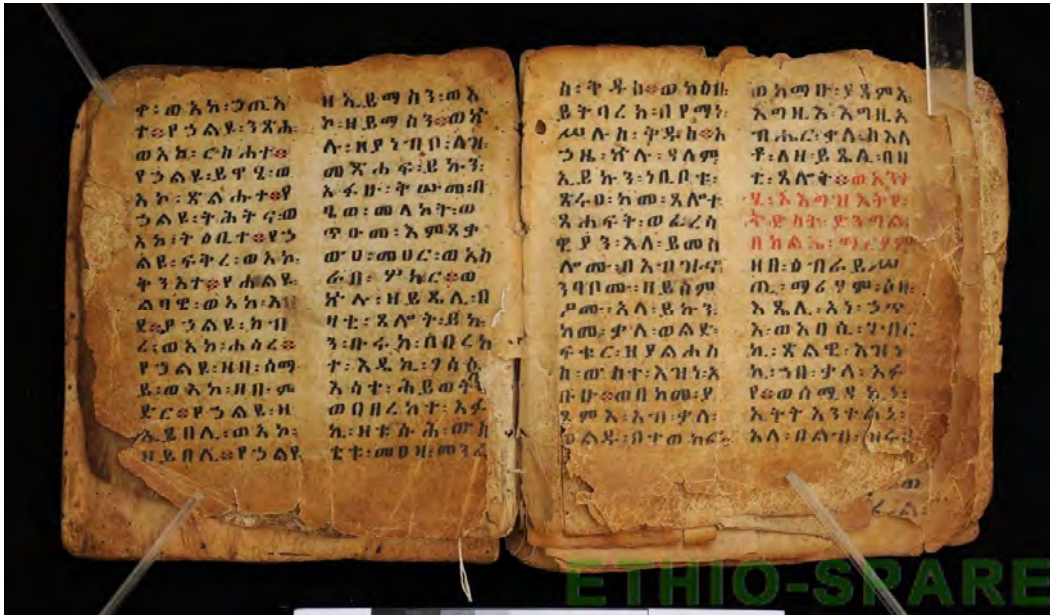 ቀ፡ወአኮ፡ኃጢአ
ተ፨የኃልዩ፡ንጽሐ
ወአኮ፡ርኩሐተ፨
የኃልዩ፡ይዋሄ፡ወ
አኮ፡ጽልሑተ፨የ
ኃልዩ፡ትሕትና፡ወ
አኮ፡ትዕቢተ፨የኃ
ልዩ፡ፍቅረ፡ወአኮ
ቅንአተ፨የሐልዩ
ልባዌ፡ወአኮ
የኃልዩ፡ክብ
ረ፡ወአኮ፡ሐሳረ፨
የኃልዩ፡ዘበ፡ሰማ
ይ፡ወአኮ፡ዘበ፡ም
ድር፨የኃልዩ፡ዘ
ኢይበሊ፡ወአኮ፡
ዘይበሊ፨የኃልዩ
ዘኢይማስን፡ወአ
ኮ፡ዘይማስን፨ወኵ
ሉ፡ዘያነብቦ፡ለዝ
መጽሐፍ፡ይኩን፡
አፋሁ፡ጥዑመ፡በ
ዜወ፡መላከት፡ወ
ጥዑመ፡እምጸቃ
ውዐ፡መዐር፡ወአስ
ራበ፡ሦከር፨ወ
ኵሉ፡ዘይጼሊ፡በ
ዛቲ፡ጸሎት፡ይኩ
ን፡ቡሩከ፡በበረከ
ተ፡እዴኪ፡
እሳተ፡ሕይወት፡
ወበበረከተ፡አፉ
ኪ፡
ስ፡ቅዱስ፨ወክዕበ
ይትባረክ፡በየማነ፡
ሥሉስ፡ቅዱስ፨እ
ኃዜ፡ኵሉ፡ዓለም
ኢይኩን፡ነቢቦቱ፡
ጽሩዐ፡ከመ፡ጸሎተ
ጸሐፍት፡ወፈሪሳ
ዊያን፡እለ፡ይመስ
ሎሙ፡በአብዝኆ፡
ንባቦሙ፡ዘይሰም
ዖሙ፡አላ፡ይኩን
ከመ፡ቃለ፡ወልድ፡
ፍቁር፡ዘያልሐስ
ስ፡ውስተ፡እዝነ፡አ
ቡሁ፨ወበከመ፡ያ
ፀምእ፡አብ፡ቃለ፡
ወልዱ፡
ወከማሁ፡ያጸምእ
እግዚእ፡እግዚአ
ብሔር፡ቃለ፡ስእለ
ቶ፡ለዘ፡ይጼሊ፡በዛ
ቲ፡ጸሎት፨ወአንተ
ሂ፡ኦእግዝእትየ፡
ቅድስት፡ድንግል፡
በክልኤ፡ማርያም
ዘበ፡ዕብራይሥ
ጢ፡ማሪሃም፡ሶበ፡
እጼሊ፡አነ፡ኃጥ
እ፡ወአባሲ፡ገብር
ኪ፡ጽልዊ፡እዝነ
ኪ፡ኀበ፡ቃለ፡አፉ
የ፨ወሰሚዓኪ፡
ኢትትአንተሊ፡
እለ፡በልብ፡
ETHIO-SPARE